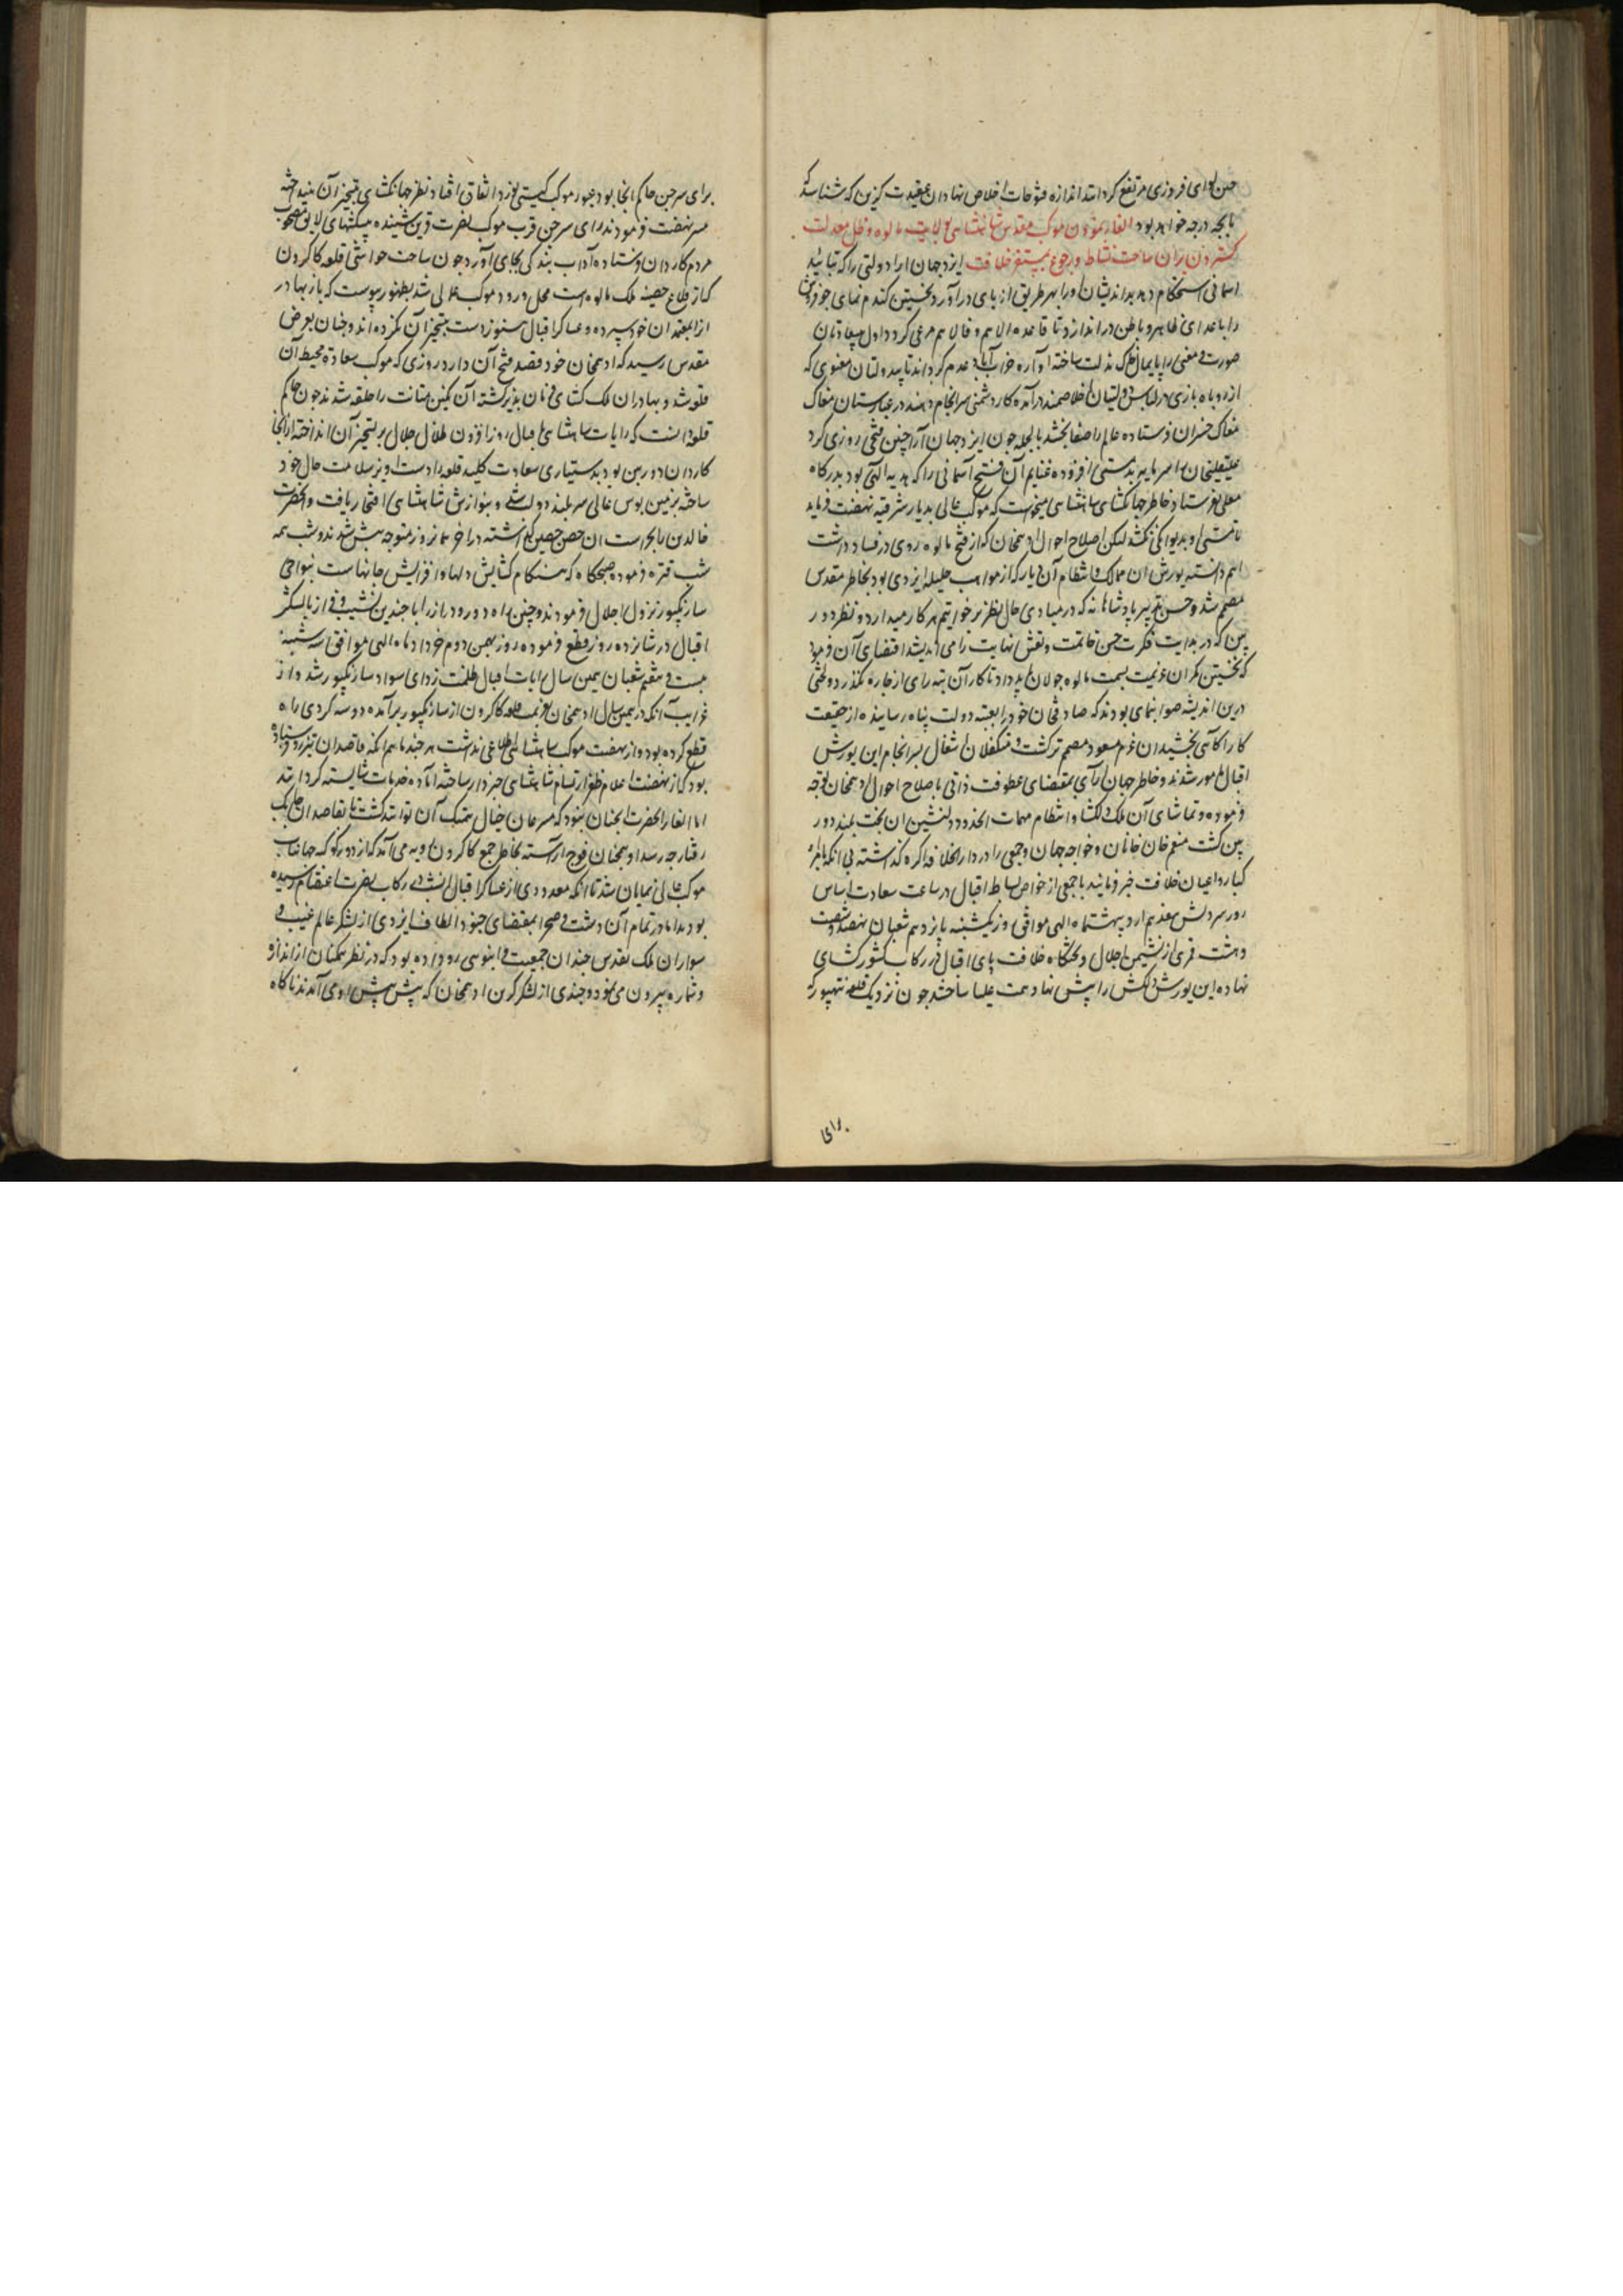 چنین لوای فیروزی مرتفع گردانند اندازه فتوحات اخلاص نهادان عقیدت گزین که شناسد که
تا بچه درجه خواهد بود انتقال نمودن موکب مقدس شاهنشاهی بولایت مالوه و ظل معدلت
گستردن بران ساحت نشاط و رجوع بمستقر خلافت ایزد جهان آرا دولتی را که بتائید
آسمانی استحکام دهد بداندیشان او را بهر طریق از پای درآورد نخستین گندم نمای جو فروش
را باعدای ظاهر و باطن در اندازد تا قاعده الاهم فالاهم مرعی گردد اول بیسعادتان
صورت و معنی را پایمال مذلت ساخته آواره خراب آباد عدم گرداند تا بیدولتان معنوی که
از روباه بازی در لباس دولتیان اخلاصمند درآمده کار دشمنی سرانجام دهند در غبارستان مغاک
مغاک خسران فرستاده عالم را صفا بخشد بالجمله چون ایزد جهان آرا چنین فتحی روزی کرد
علیقلیخان را سرمایه بدمستی افزوده غنایم آن فتح آسمانی را که هدیه الهی بود بدرگاه
معلی نفرستاد خاطر جهانگشای شاهنشاهی میخواست که موکب عالی بدیار شرقیه نهضت فرماید
تا مستی او بدیوانگی نکشد لیکن اصلاح احوال ادهمخان که از فتح مالوه روی در فساد داشت
اهم دانسته یورش آن ممالک و انتظام آن دیار که از مواهب جلیله ایزدی بود بخاطر مقدس
مصمم شد و حسن تدبیر پادشاهانه که در مبادی حال نظر بر خواتیم هر کار میدارد و نظر دور
بین که در بدایت فکرت حسن خاتمت و نقش نهایت را می اندیشد اقتضای آن فرمود
که نخستین یکران عزیمت بسمت مالوه جولان پذیرد تا کار آن تبه رای از چاره نگذرد و لختی
درین اندیشه صوابنمای بودند که صادق خان خود را بعتبه دولت پناه رسانیده از حقیقت
کار آگاهی بخشید آن عزم مسعود مصمم تر گشت و متکفلان اشغال بسرانجام این یورش
اقبال مامور شدند و خاطر جهان آرای بمقتضای عطوفت ذاتی باصلاح احوال ادهمخان توجه
فرموده و تماشای آن ملک دلگشا و انتظام مهمات آنحدود دلنشین آن بخت بلند دور
بین گشت منعم خان خانخانان و خواجه جهان و جمعی را در دار الخلافه آگره گذاشته بی آنکه بامرا
کبار و اعیان خلافت خبر فرمایند با جمعی از خواص بساط اقبال در ساعت سعادت اساس
روز سروش هفدهم اردیبهشت ماه الهی موافق روز یکشنبه یازدهم شعبان نهصد و شصت
و هشت قمری از نشیمن اجلال و تختگاه خلافت پای اقبال در رکاب کشورگشای
نهاده این یورش دلکش را پیش نهاد همت علیا ساختند چون نزدیک قلعه رنتهپور که
رای
برای سرجن حاکم آنجا بود عبور موکب گیتی نورد اتفاق افتاد نظر جهانگشای بتسخیر آن نینداخته
مر نهضت فرمودند رای سرجن قرب موکب نصرت قرین شنیده پیشکشهای لایق مصحوب
مردم کاردان فرستاده آداب بندگی بجای آورد چون ساحت حواشی قلعه کاکرون
که از قلاع حصینه ملک مالوه است محل ورود موکب عالی شد بظهور پیوست که باز بهادر
آنرا بمعتمدان خود سپرده و عساکر اقبال هنوز دست بتسخیر آن نکرده اند و چنان بعرض
مقدس رسید که ادهمخان خود قصد فتح آن دارد روزی که موکب سعادت محیط آن
قلعه شد و بهادران ملک گشای فرمان پذیر گشته آن نگین متانت را حلقه شدند چون حاکم
قلعه دانست که رایات شاهنشاهی باقبال روزافزون ظلال جلال بر تسخیر آن انداخته از آنجا
کاردان و دوربین بود بدستیاری سعادت کلید قلعه را دست آویز سلامت حال خود
ساخته بزمین بوس عالی سربلند دولت شد و بنوازش شاهنشاهی افتخار یافت و آنحضرت
خالدین را بحراست آن حصن حصین گذاشته در آخر همان روز متوجه پیش شدند و شب همه
شب قتره فرموده صبحگاه که هنگام گشایش دلها و افزایش جانهاست بنواحی
سارنگپور نزول اجلال فرمودند و چنین راه دور دراز را با چندین نشیب و فراز با لشکر
اقبال در شانزده روز قطع فرموده روز بهمن دوم خرداد ماه الهی موافق سه شنبه
بیست و هفتم شعبان همین سال رایات اقبال ظلمت زدای سواد سارنگپور شد و از
غرایب آنکه در همین سال ادهمخان بعزیمت قلعه کاکرون از سارنگپور برآمده دو سه کروهی راه
قطع کرده بود و از نهضت موکب شاهنشاهی اطلاعی نداشت هر چند ماهم انکه قاصدان تیزرو فرستاده
بود که از نهضت اعلام ظفر ارتسام شاهنشاهی خبردار ساخته آماده خدمات شایسته گردانند
اما ایلغار آنحضرت نه آنچنان بود که مسرعان خیال همتک آن توانند گشت تا بقاصدان چابک
رفتار چه رسد ادهمخان فوج آراسته بخاطر جمع کاکرون رویه می آمد که از دور کوکبه جهانتاب
موکب عالی نمایان شد تا آنکه معدودی از عساکر اقبال در رکاب نصرت اعتصام رسیده
بودند اما در تمام آن دشت و صحرا بمقتضای جنود الطاف ایزدی از لشکر عالم غیب و
سواران ملک تقدس چندان جمعیت و انبوهی رو داده بود که در نظر همگنان از اندازه
و شماره بیرون می نمود و چندی از لشکر ادهمخان که پیش پیش او می آمدند ناگاه